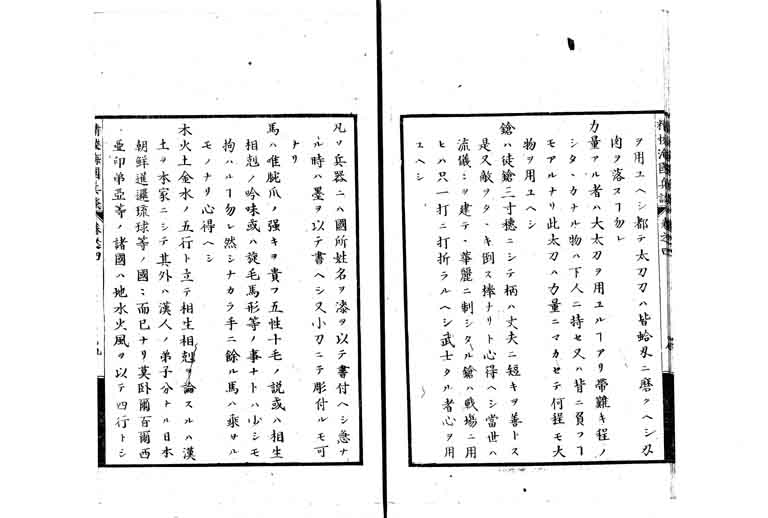 ヲ用ユヘシ都テ太刀刀ハ皆蛤刄ニ磨クヘシ刄
肉ヲ落スヿ勿レ
力量アル者ハ大太刀ヲ用ユルヿアリ帯難キ程ノ
シタヽカナル物ハ下人ニ持セ又ハ皆ニ負フヿ
モアルナリ此太刀ハ力量ニマカセテ何程モ大
物ヲ用ユヘシ
鎗ハ徒鎗三寸穂ニシテ柄ハ丈夫ニ短キヲ善トス
是又敵ヲタヽキ倒ス捧ナリト心得ヘシ當世ハ
流儀〻ヲ建テ華麗ニ制シタル鎗ハ戰場ニ用
ヒハ只一打ニ打折ラルヘシ武士タル者心ヲ用
ユヘシ
精校海國兵談 卷之四
凡ソ兵器ニハ國所姓名ヲ漆ヲ以テ書付ヘシ急ナ
ル時ハ墨ヲ以テ書ヘシ又小刀ニテ彫付ルモ可
ナリ
馬ハ唯胣爪ノ强キヲ貴フ五性十毛ノ説或ハ相生
相剋ノ吟味或ハ旋毛馬形等ノ事ナトハ少シモ
拘ハルヿ勿レ然シナカラ手ニ餘ル馬ハ乘サル
モノナリ心得ヘシ
木火土金水ノ五行ト立テ相生相剋ヲ論スルハ漢
土ヲ本家ニシテ其外ハ漢人ノ弟子分トル日本
朝鮮暹邏琉球等ノ國〻而已ナリ莫卧爾百爾西
亞印弟亞等ノ諸國ハ地水火風ヲ以テ四行トシ
精校海國兵談 卷之四 九